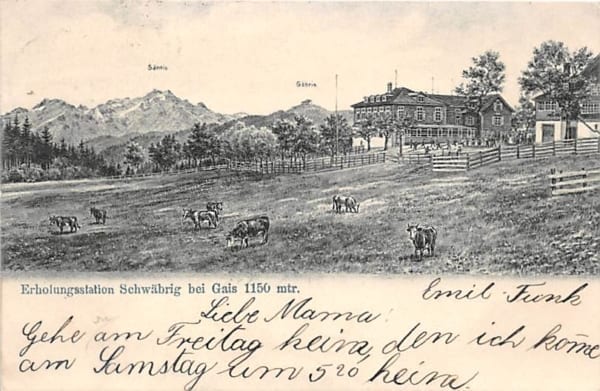 Säntis
Gäbris
Erholungsstation Schwäbrig bei Gais 1150 mtr.
Emil Funk
Liebe Mama!
Gehe am Freitag heim, den ich kome
am Samstag um 5 20 heim.